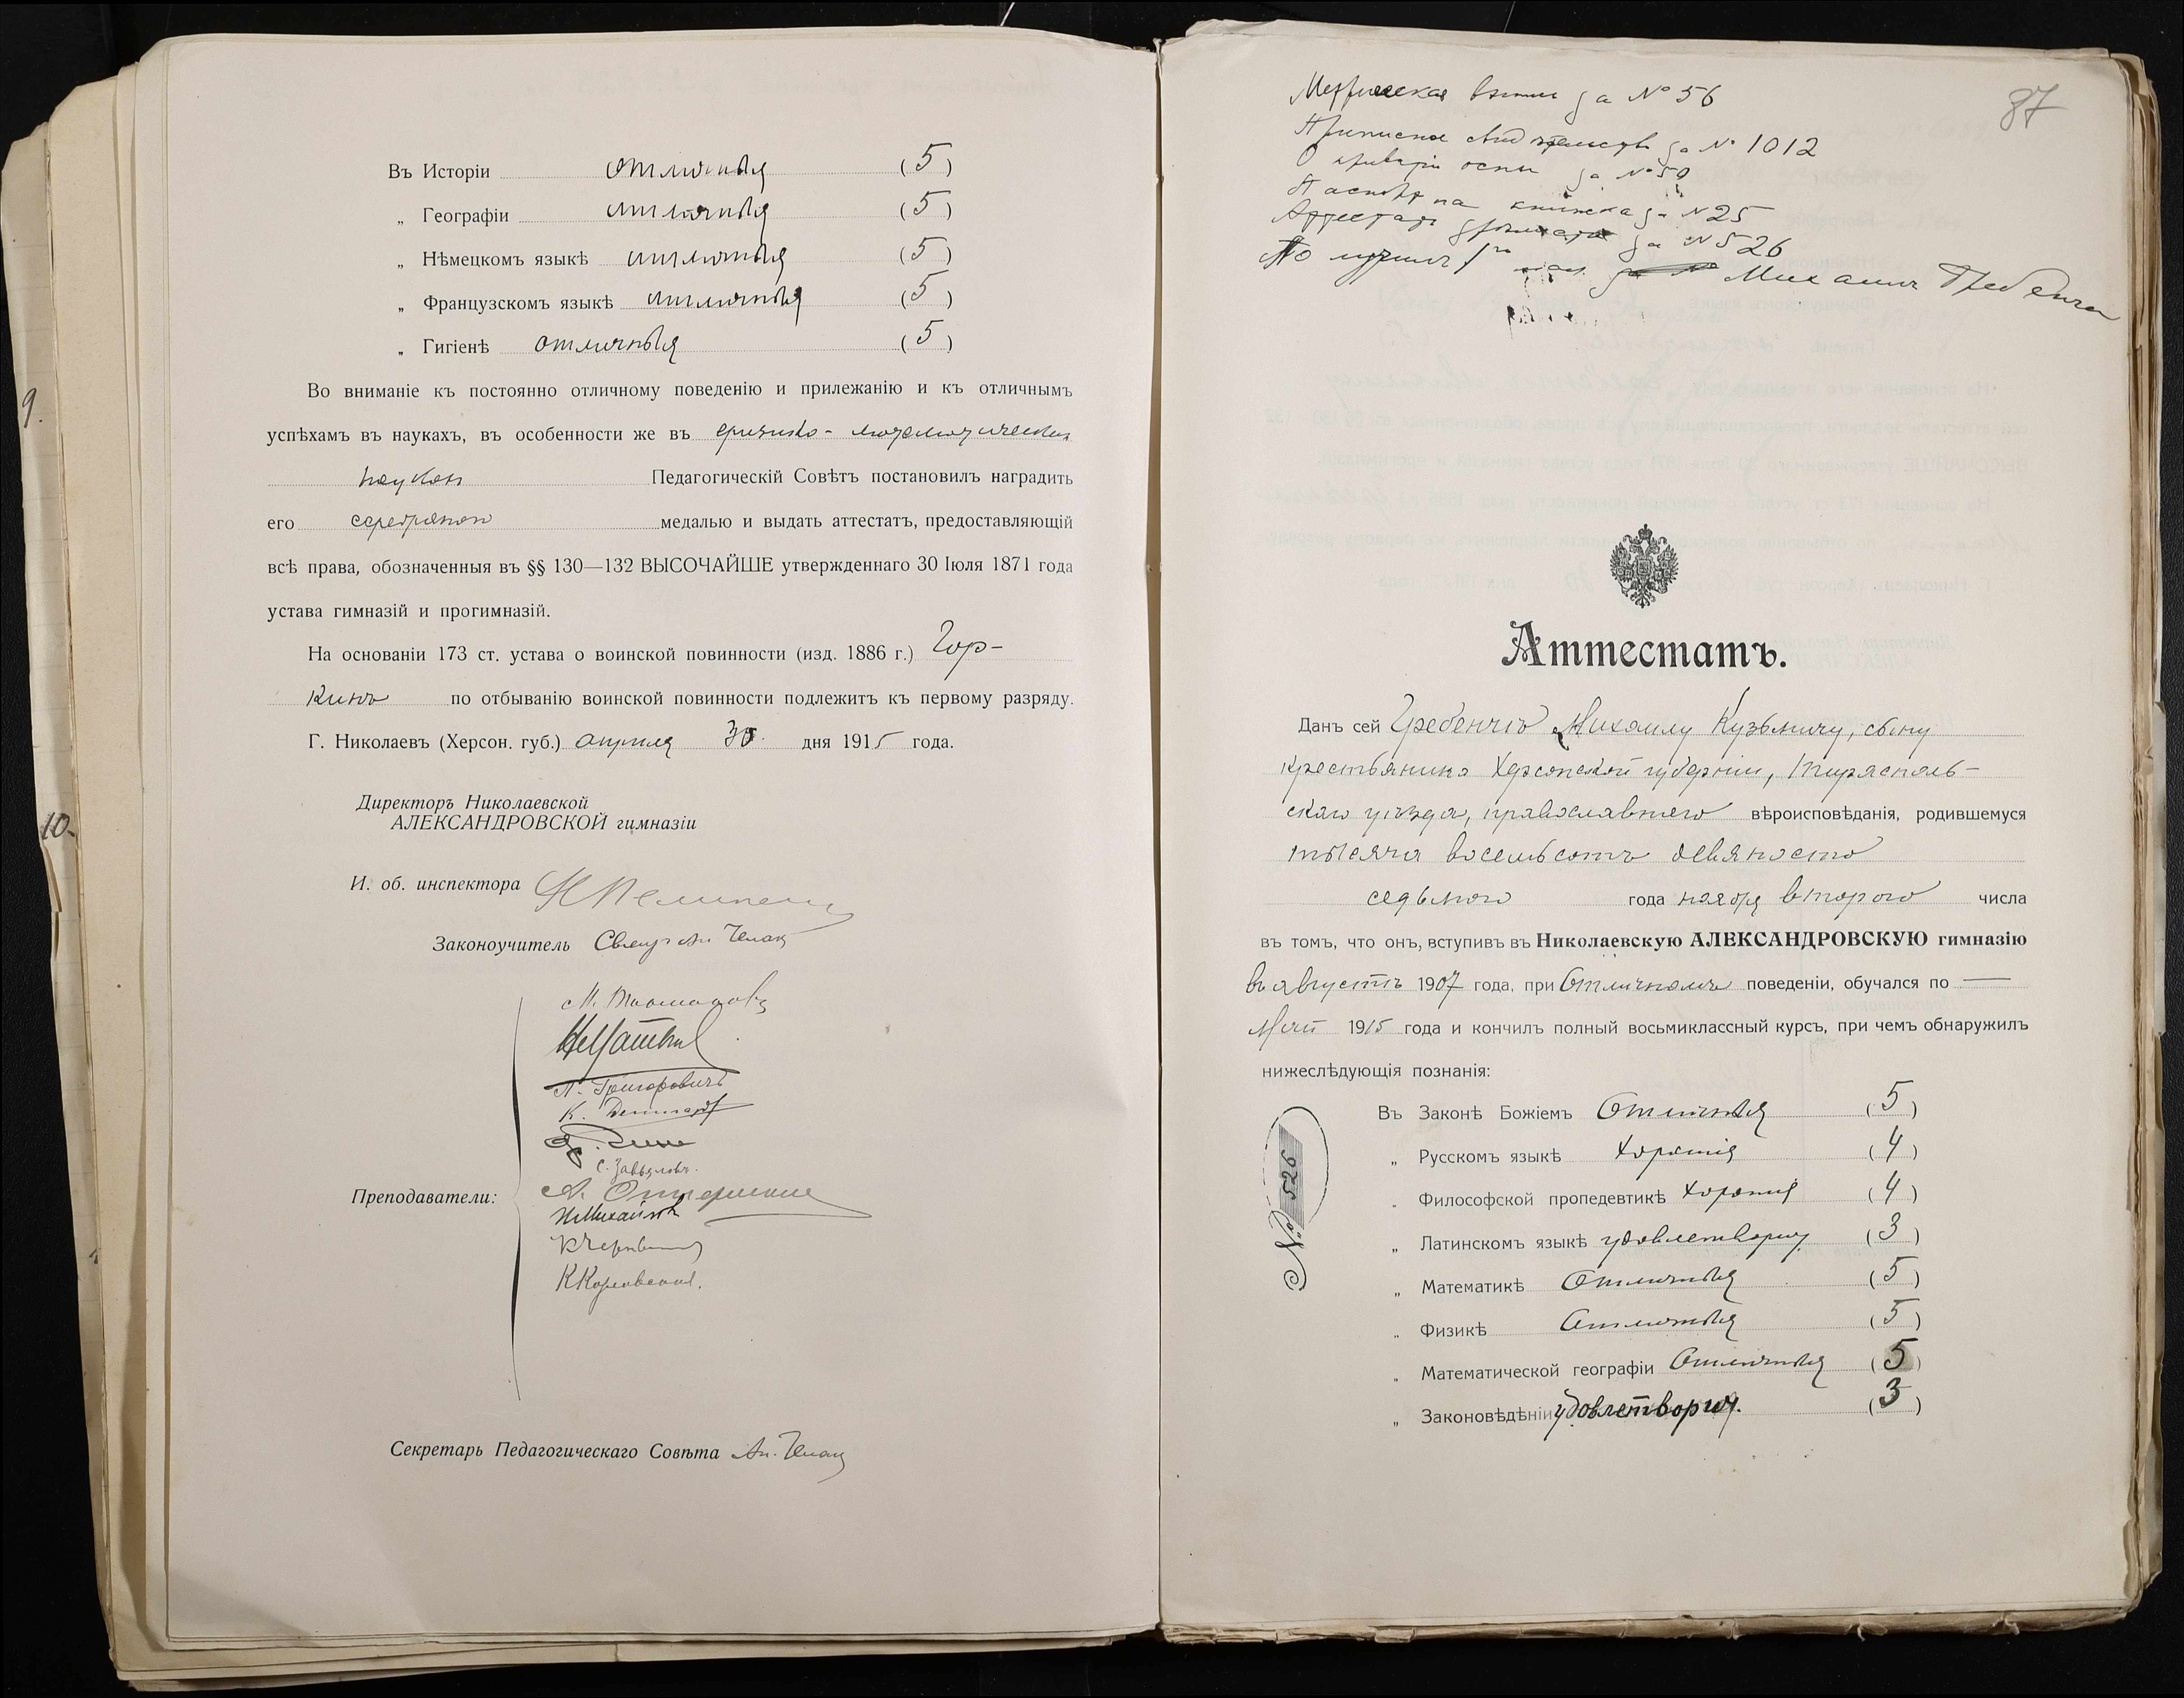 9.
10.
Въ Исторіи отличныя (5)
„ Географіи отличныя (5)
„ Нѣмецкомъ языкѣ отличныя (5)
„ Французскомъ языкѣ отличныя (5)
„ Гигіенѣ отличныя (5)
Во вниманіе къ постоянно отличному поведенію и прилежанію и къ отличнымъ
успѣхамъ въ наукахъ, въ особенности же въ физико-математическихъ
наукахъ Педагогическій Совѣтъ постановилъ наградить
его серебряной медалью и выдать аттестатъ, предоставляющій
всѣ права, обозначенныя въ §§ 130—132 ВЫСОЧАЙШЕ утвержденнаго 30 Іюля 1871 года
устава гимназій и прогимназій.
На основаніи 173 ст. устава о воинской повинности (изд. 1886 г.) Гор-
кинъ по отбыванію воинской повинности подлежитъ къ первому разряду.
Г. Николаевъ (Херсон. губ.) апрѣля 30 дня 1915 года.
Директоръ Николаевской
АЛЕКСАНДРОВСКОЙ гимназіи
И. об. инспектора
Законоучитель Свящ. Ан.
Преподаватели:
Л. Григоровичъ
К.
С. Завьяловъ.
Н. Михайловъ
Секретарь Педагогическаго Совѣта Ан.
87
Метрическая выпись за № 56
Приписное свидѣтельство за № 1012
О привитіи оспы за № 50
Паспортная книжка за № 25
Аттестатъ зрѣлости за № 526
Получилъ Михаилъ Гребенчо
Аттестатъ.
Данъ сей Михаилу Кузьмичу, сыну
крестьянина Херсонской губерніи, Тирасполь-
скаго уѣзда, православнаго вѣроисповѣданія, родившемуся
тысяча восемьсотъ девяносто
седьмого года ноября второго числа
въ томъ, что онъ, вступивъ въ Николаевскую АЛЕКСАНДРОВСКУЮ гимназію
въ августѣ 1907 года, при Отличномъ поведеніи, обучался по —
Май 1915 года и кончилъ полный восьмиклассный курсъ, при чемъ обнаружилъ
нижеслѣдующія познанія:
№ 526
Въ Законѣ Божіемъ Отличныя (5)
„ Русскомъ языкѣ хорошія (4)
„ Философской пропедевтикѣ хорошія (4)
„ Латинскомъ языкѣ удовлетворит. (3)
„ Математикѣ Отличныя (5)
„ Физикѣ Отличныя (5)
„ Математической географіи Отличныя (5)
„ Законовѣдѣніи удовлетворит. (3)